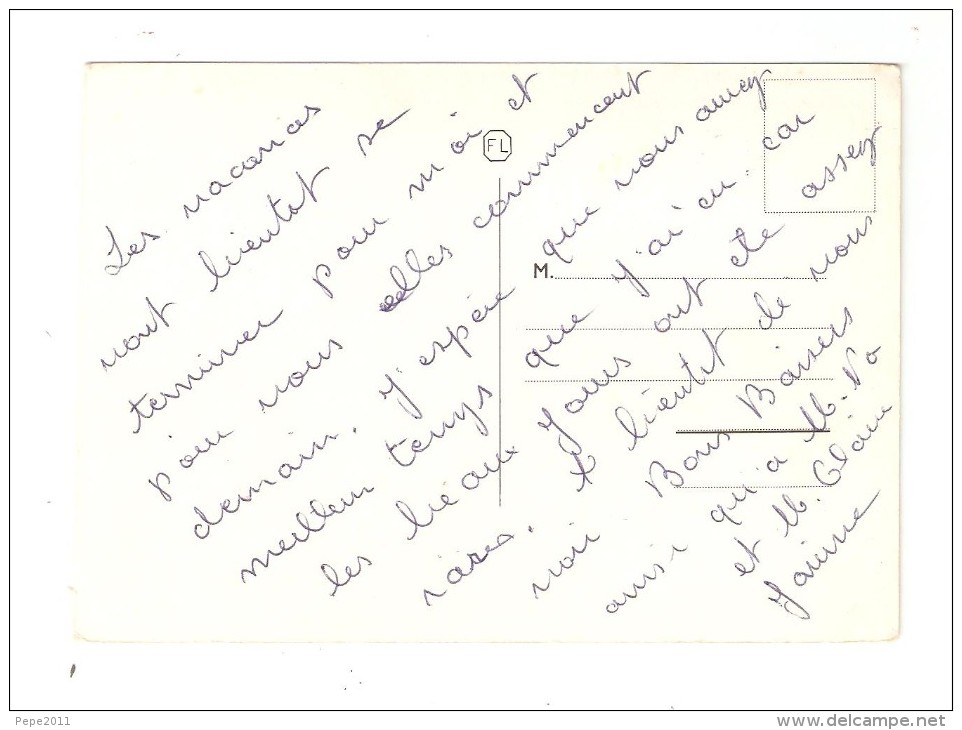 Les vacances
vont bientot se
terminer pour moi et
pour vous elles commencent
demain. J'espère que vous aurez
meilleur temps que j'ai eu. car
les beaux jours ont ete assez
rares. A bientit de vous
voir Bons Baisers
ainsi qu'a M. No
et M. Claire
Janine
FL
M.
Pepe2011
www.delcampe.net